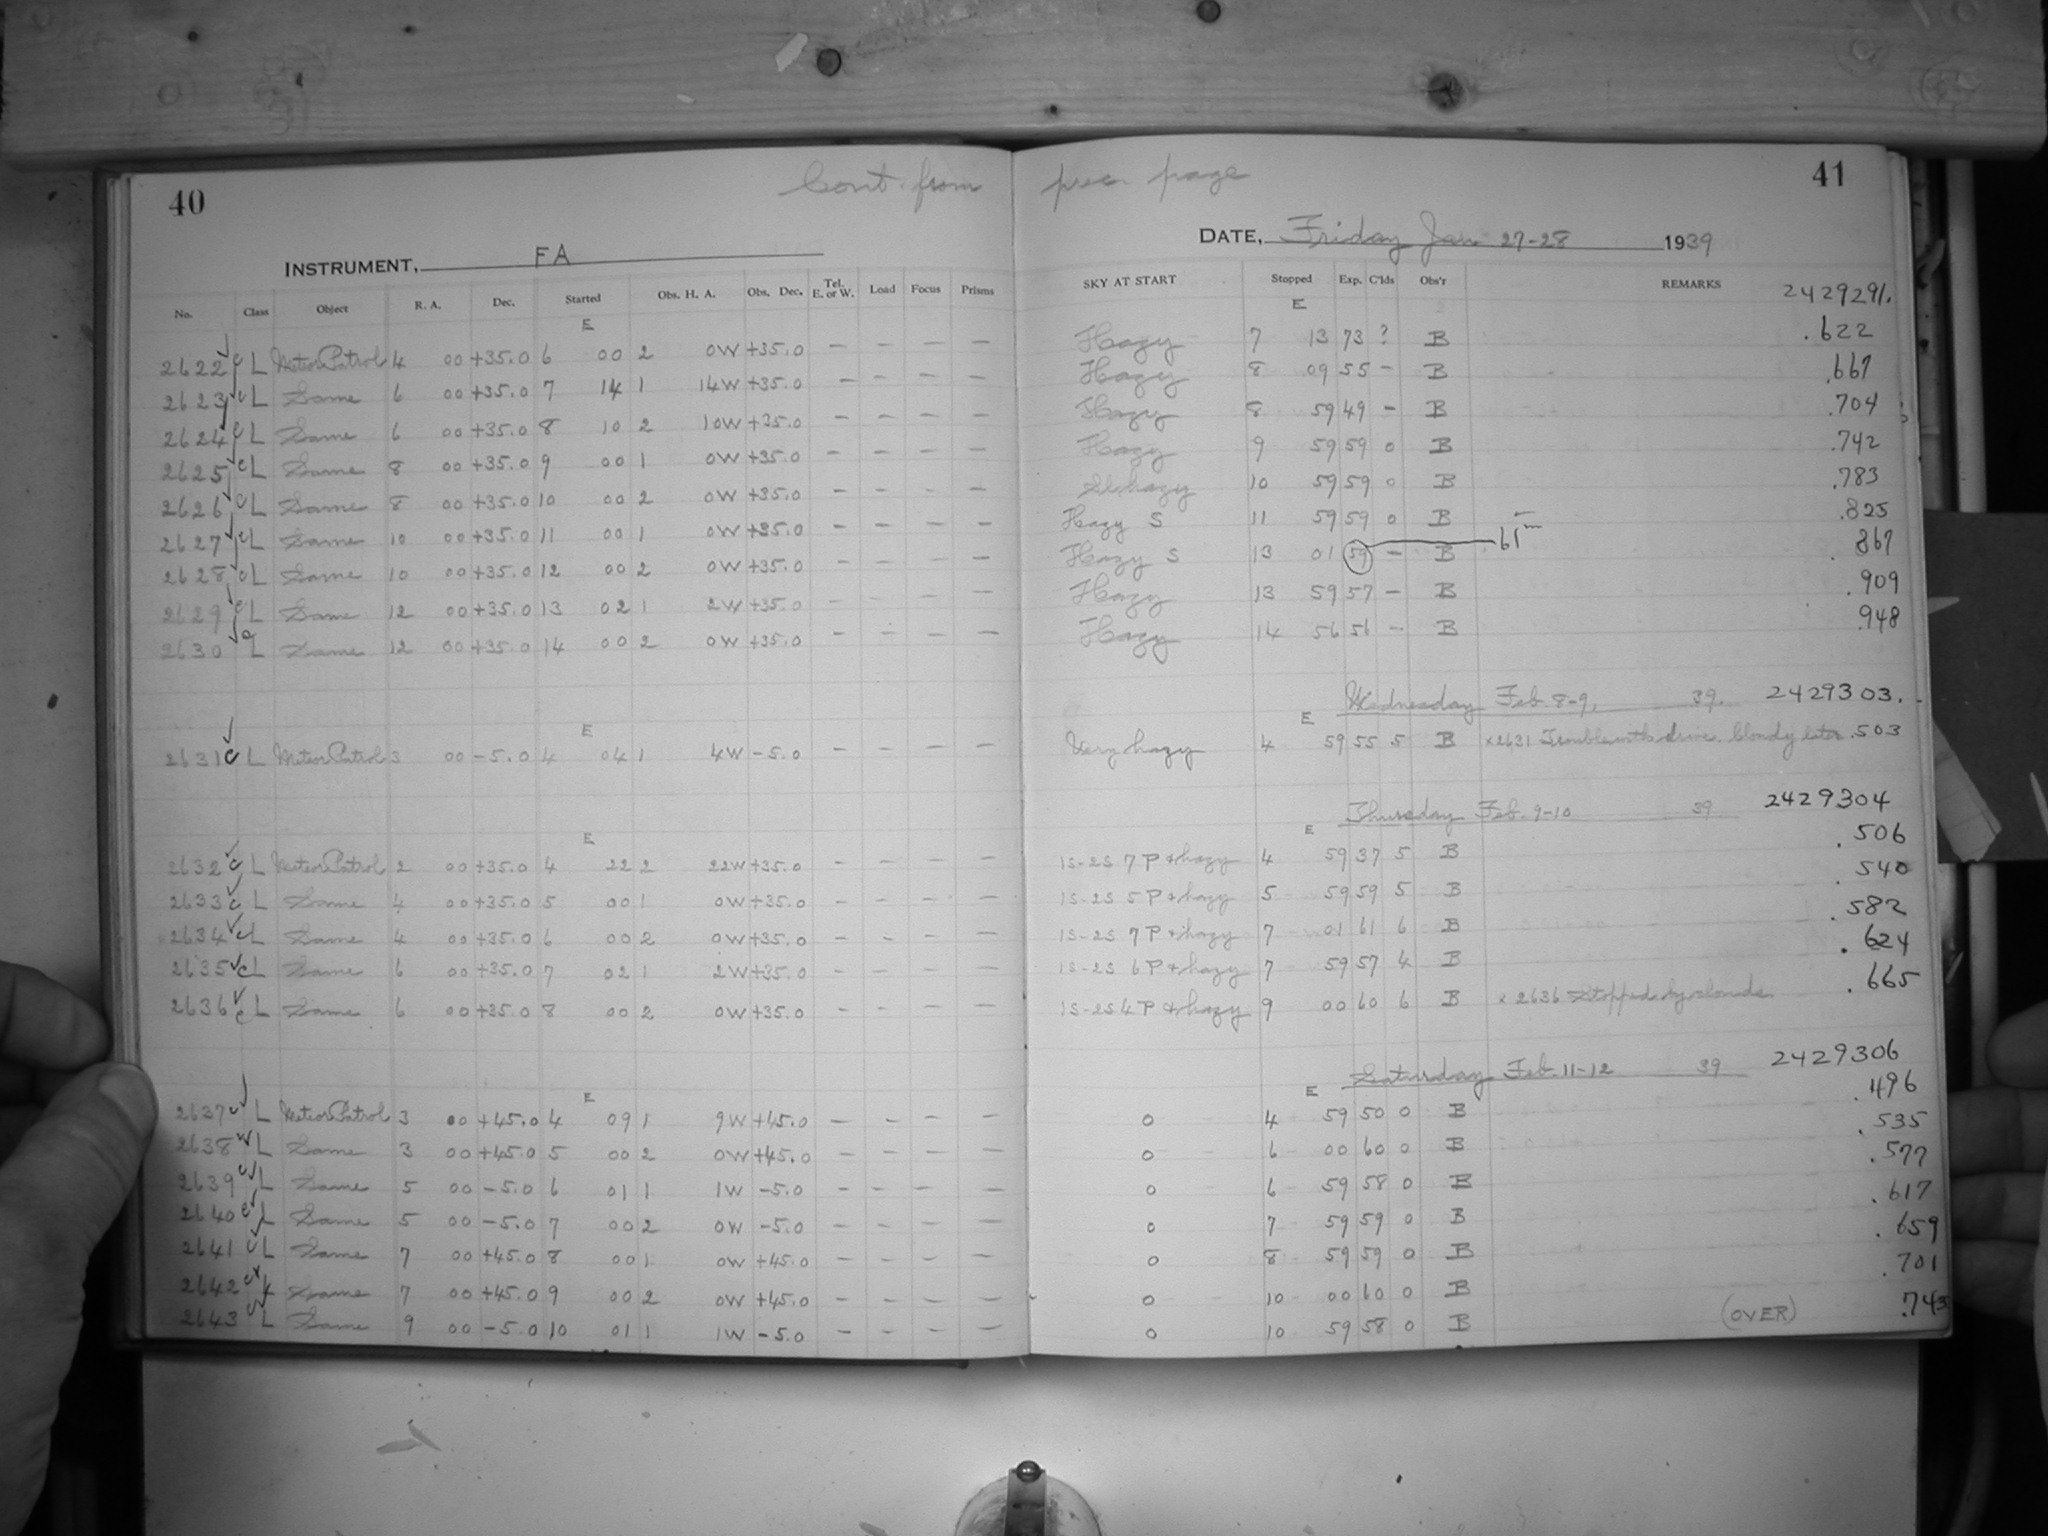 40
Cont. from prec. page
41
INSTRUMENT, FA
DATE, Friday Jan 27-28 1939
No. Class Object R. A. Dec. Started Obs. H. A. Obs. Dec. Tel. E. or W. Load Focus Prisms SKY AT START Stopped Exp. C'lds Obs'r REMARKS 2429291.
E E
2622 c L Meteor Patrol 4 00 +35.0 6 00 2 0W +35.0 — — — — Hazy 7 13 73 ? B .622
2623 c L Same 6 00 +35.0 7 14 1 14W +35.0 — — — — Hazy 8 09 55 — B .667
2624 c L Same 6 00 +35.0 8 10 2 10W +35.0 — — — — Hazy 8 59 49 — B .704
2625 c L Same 8 00 +35.0 9 00 1 0W +35.0 — — — — Hazy 9 59 59 0 B .742
2626 c L Same 8 00 +35.0 10 00 2 0W +35.0 — — — — Sl. hazy 10 59 59 0 B .783
2627 c L Same 10 00 +35.0 11 00 1 0W +35.0 — — — — Hazy S 11 59 59 0 B .825
2628 c L Same 10 00 +35.0 12 00 2 0W +35.0 — — — — Hazy S 13 01 59 — B 61m .867
2629 c L Same 12 00 +35.0 13 02 1 2W +35.0 — — — — Hazy 13 59 57 — B .909
2630 c L Same 12 00 +35.0 14 00 2 0W +35.0 — — — — Hazy 14 56 56 — B .948
Wednesday Feb. 8-9, 39. 2429303.
E E
2631 c L Meteor Patrol 3 00 -5.0 4 04 1 4W -5.0 — — — — Very hazy 4 59 55 5 B x2631 Trouble with drive. Cloudy later .503
Thursday Feb. 9-10 39 2429304
E E
2632 c L Meteor Patrol 2 00 +35.0 4 22 2 22W +35.0 — — — — 1S-2S 7P & hazy 4 59 37 5 B .506
2633 c L Same 4 00 +35.0 5 00 1 0W +35.0 — — — — 1S-2S 5P & hazy 5 59 59 5 B .540
2634 c L Same 4 00 +35.0 6 00 2 0W +35.0 — — — — 1S-2S 7P & hazy 7 01 61 6 B .582
2635 c L Same 6 00 +35.0 7 02 1 2W +35.0 — — — — 1S-2S 6P & hazy 7 59 57 4 B .624
2636 c L Same 6 00 +35.0 8 00 2 0W +35.0 — — — — 1S-2S 4P & hazy 9 00 60 6 B x 2636 Stopped by clouds. .665
Saturday Feb 11-12 39 2429306
E E
2637 c L Meteor Patrol 3 00 +45.0 4 09 1 9W +45.0 — — — — 0 4 59 50 0 B .496
2638 c L Same 3 00 +45.0 5 00 2 0W +45.0 — — — — 0 6 00 60 0 B .535
2639 c L Same 5 00 -5.0 6 01 1 1W -5.0 — — — — 0 6 59 58 0 B .577
2640 c L Same 5 00 -5.0 7 00 2 0W -5.0 — — — — 0 7 59 59 0 B .617
2641 c L Same 7 00 +45.0 8 00 1 0W +45.0 — — — — 0 8 59 59 0 B .659
2642 c L Same 7 00 +45.0 9 00 2 0W +45.0 — — — — 0 10 00 60 0 B .701
2643 c L Same 9 00 -5.0 10 01 1 1W -5.0 — — — — 0 10 59 58 0 B (OVER) .743